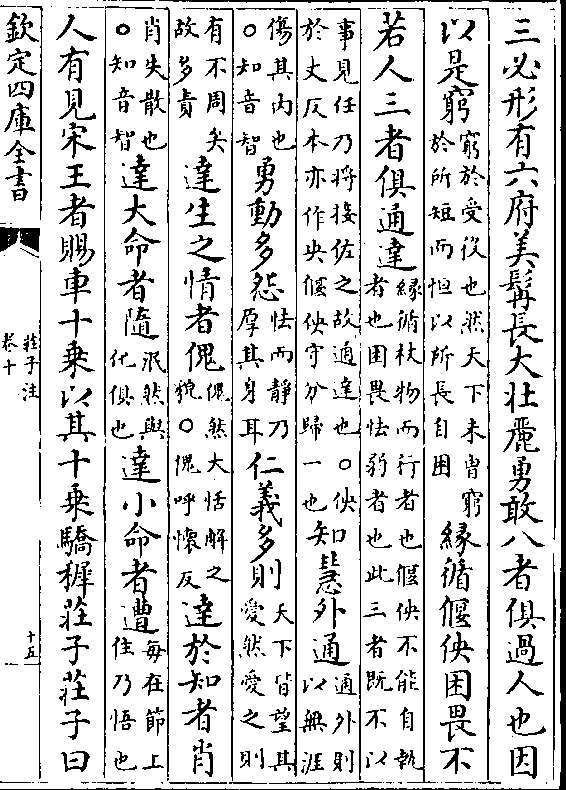 三必形有六府美髯長大壯麗勇敢八者俱過人也因
以是窮窮於受役也然天下未曾窮於所短而恒以所長自困緣循偃佒困畏不
若人三者俱通達緣循杖物而行者也偃佒不能自執者也困畏怯弱者也此三者既不以
事見任乃將接佐之故通達也○佒如於丈反本亦作央偃佒守分歸一也知慧外通通外則以無涯
傷其内也○知音智勇動多怨怯而靜乃厚其身耳仁義多則天下皆望其愛然愛之則
有不周矣故多責達生之情者傀傀然大恬解之貌○傀呼懷反達於知者肖
肖失散也○知音智達大命者隨泯然與化俱也達小命者遭每在節上住乃悟也
人有見宋王者賜車十乗以其十乗驕穉莊子莊子曰
欽定四庫全書
莊子注
卷十
十五